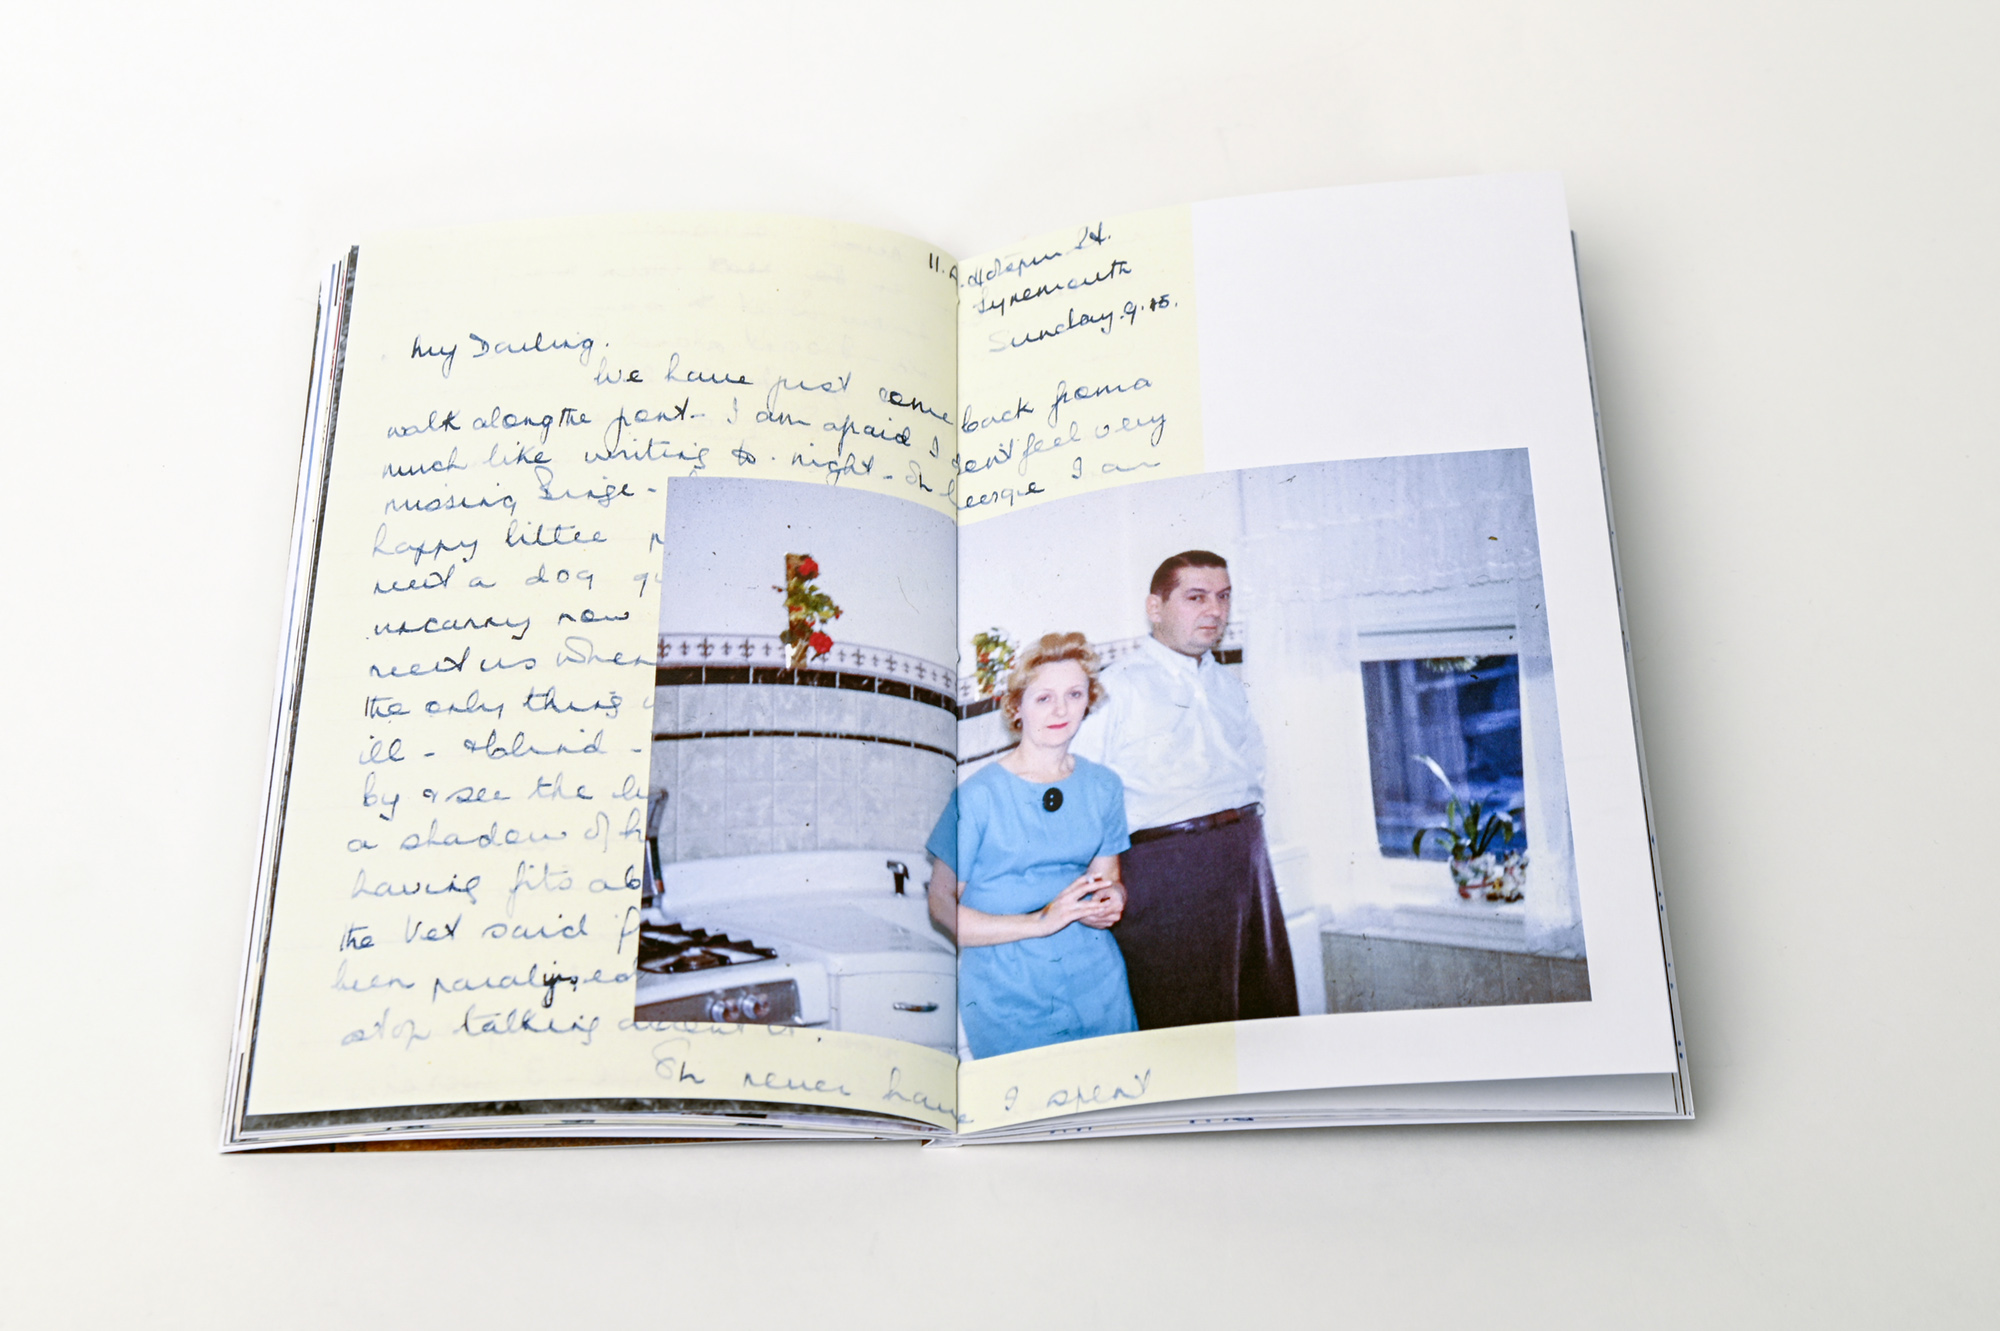 Tynemouth
Sunday. 9.15.
My Darling.
We have just come back from a
walk along the front - I am afraid I don't feel very
much like writing to.night - Oh George I am
missing
happy little
meet a dog
uncanny now
meet us when
the only thing
ill - & blind -
by & see the
a shadow of h
having fits ab
the Vet said if
been paralysed
stop talking about it.
Oh never have I spent